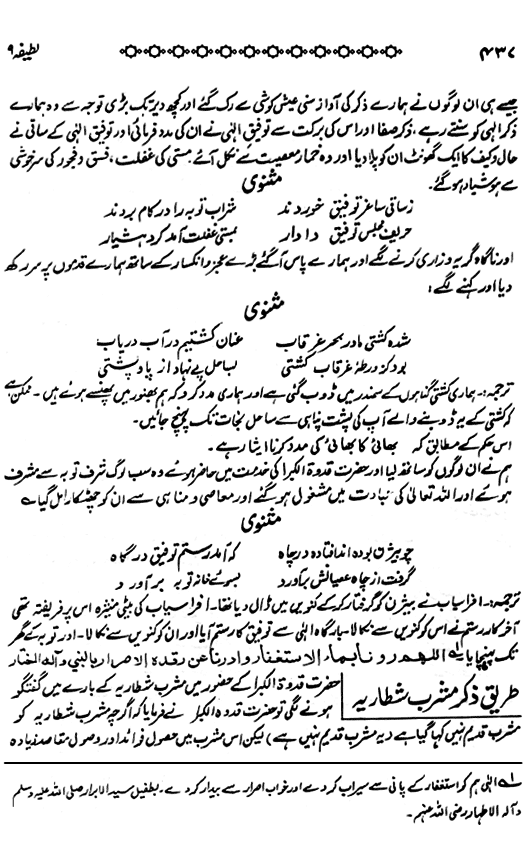 ۴۳۷ لطیفہ ۹
جیسے ہی ان لوگوں نے ہمارے ذکر کی آواز سنی عیش کوشی سے رک گئے اور کچھ دیر تک بڑی توجہ سے وہ ہمارے
ذکر الٰہی کو سنتے رہے، ذکر صفا اور اس کی برکت سے توفیق الٰہی نے ان کی مدد فرمائی اور توفیق الٰہی کے ساقی نے
حال و کیف کا ایک گھونٹ ان کو پلا دیا اور وہ خمار معصیت سے نکل آئے مستی کی غفلت، فسق و فجور کی سرخوشی
سے ہوشیار ہو گئے۔
مثنوی
ز ساقی ساغر توفیق خوردند شراب توبہ را در کام بردند
حریف مجلس توفیق دادار بمستی غفلت آمد کرد ہشیار
اور ناگاہ گریہ و زاری کرنے لگے اور ہمارے پاس آگئے بڑے عجز و انکسار کے ساتھ ہمارے قدموں پر سر رکھ
دیا اور کہنے لگے:
مثنوی
شدہ کشتی ما در بحر غرقاب عنان کشتیم در آب دریاب
بود کز ورطۂ غرقاب کشتی بساحل پے نہاد از پاو پشتی
ترجمہ:۔ ہماری کشتی گناہوں کے سمندر میں ڈوب گئی ہے اور ہماری مدد کرو کہ ہم بھنور میں پھنسے ہوئے ہیں۔ ممکن ہے
کہ کشتی کے یہ ڈوبنے والے آپ کی پشت پناہی سے ساحل نجات تک پہنچ جائیں۔
اس حکم کے مطابق کہ بھائی کا بھائی کی مدد کرنا ایثار ہے۔
ہم نے ان لوگوں کو ساتھ لیا اور حضرت قدوۃ الکبرا کی خدمت میں حاضر ہوئے وہ سب لوگ شرف توبہ سے مشرف
ہوئے اور اللہ تعالیٰ کی عبادت میں مشغول ہو گئے اور معاصی و مناہی سے ان کو چھٹکارا مل گیا۔
مثنوی
چو بیژن بودہ اند افتادہ در چاہ کہ آمد رستم توفیق درگاہ
گرفت از چاہ عصیانش برآورد بسوئے خانۂ توبہ برآورد
ترجمہ:۔ افراسیاب نے بیژن کو گرفتار کر کے کنویں میں ڈال دیا تھا۔ افراسیاب کی بیٹی منیژہ اس پر فریفتہ تھی
آخر کار رستم نے اس کو کنویں سے نکالا۔ بارگاہ الٰہی سے توفیق کا رستم آیا اور ان کو کنویں سے نکالا۔ اور توبہ کے گھر
تک پہنچا یا ۱؎ اللہم رونا بماء الاستغفار وادرنا عن رقدۃ الاصرار بالنبی وآلہ المختار
طریق ذکر مشرب شطاریہ
حضرت قدوۃ الکبرا کے حضور میں مشرب شطاریہ کے بارے میں گفتگو
ہونے لگی تو حضرت قدوۃ الکبرا نے فرمایا کہ اگرچہ مشرب شطاریہ کو
مشرب قدیم نہیں کہا گیا ہے (یہ مشرب قدیم نہیں ہے) لیکن اس مشرب میں حصول فوائد اور وصول مقاصد زیادہ
۱؎ الٰہی ہم کو استغفار کے پانی سے سیراب کر دے اور خواب اصرار سے بیدار کر دے۔ بطفیل سید الابرار صلی اللہ علیہ وسلم
و آلہ الاطہار رضی اللہ عنہم۔